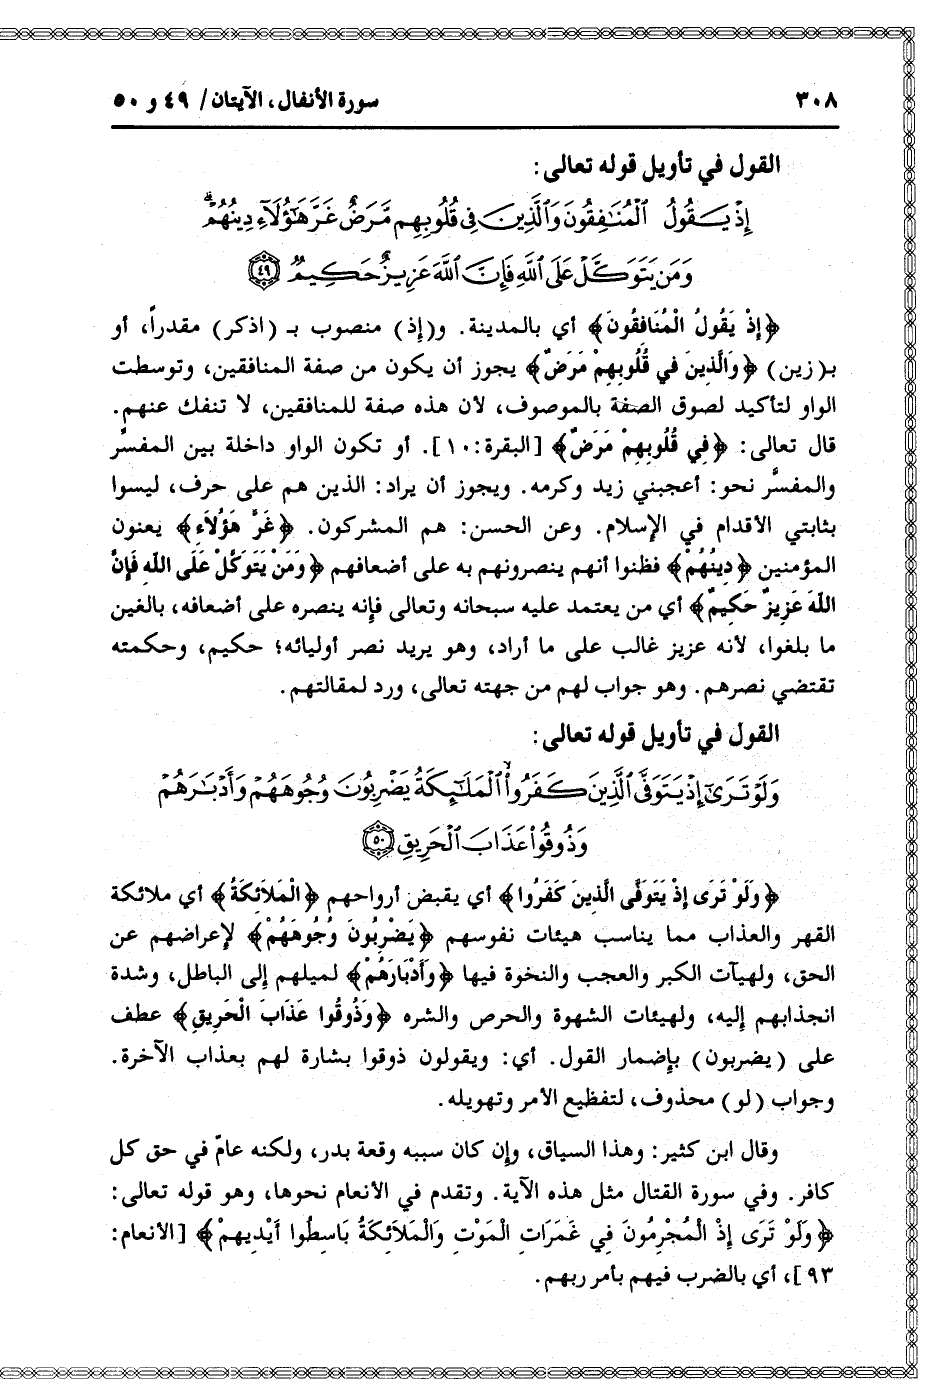 ٣٠٨ سورة الأنفال، الآيتان / ٤٩ و ٥٠
القول في تأويل قوله تعالى:
إِذْ يَقُولُ الْمُنَافِقُونَ وَالَّذِينَ فِي قُلُوبِهِم مَّرَضٌ غَرَّ هَٰؤُلَاءِ دِينُهُمْ ۗ
وَمَن يَتَوَكَّلْ عَلَى اللَّهِ فَإِنَّ اللَّهَ عَزِيزٌ حَكِيمٌ ٤٩
﴿إِذْ يَقُولُ الْمُنَافِقُونَ﴾ أي بالمدينة. و(إذ) منصوب بـ (اذكر) مقدراً، أو
بـ(زين) ﴿وَالَّذِينَ فِي قُلُوبِهِمْ مَرَضٌ﴾ يجوز أن يكون من صفة المنافقين، وتوسطت
الواو لتأكيد لصوق الصفة بالموصوف، لأن هذه صفة للمنافقين، لا تنفك عنهم.
قال تعالى: ﴿فِي قُلُوبِهِمْ مَرَضٌ﴾ [البقرة: ١٠]. أو تكون الواو داخلة بين المفسِّر
والمفسَّر نحو: أعجبني زيد وكرمه. ويجوز أن يراد: الذين هم على حرف، ليسوا
بثابتي الأقدام في الإسلام. وعن الحسن: هم المشركون. ﴿غَرَّ هَؤُلَاءِ﴾ يعنون
المؤمنين ﴿دِينُهُمْ﴾ فظنوا أنهم ينصرونهم به على أضعافهم ﴿وَمَنْ يَتَوَكَّلْ عَلَى اللَّهِ فَإِنَّ
اللَّهَ عَزِيزٌ حَكِيمٌ﴾ أي من يعتمد عليه سبحانه وتعالى فإنه ينصره على أضعافه، بالغين
ما بلغوا، لأنه عزيز غالب على ما أراد، وهو يريد نصر أوليائه؛ حكيم، وحكمته
تقتضي نصرهم. وهو جواب لهم من جهته تعالى، ورد لمقالتهم.
القول في تأويل قوله تعالى:
وَلَوْ تَرَىٰ إِذْ يَتَوَفَّى الَّذِينَ كَفَرُوا ۙ الْمَلَائِكَةُ يَضْرِبُونَ وُجُوهَهُمْ وَأَدْبَارَهُمْ
وَذُوقُوا عَذَابَ الْحَرِيقِ ٥٠
﴿وَلَوْ تَرَى إِذْ يَتَوَفَّى الَّذِينَ كَفَرُوا﴾ أي يقبض أرواحهم ﴿الْمَلَائِكَةُ﴾ أي ملائكة
القهر والعذاب مما يناسب هيئات نفوسهم ﴿يَضْرِبُونَ وُجُوهَهُمْ﴾ لإعراضهم عن
الحق، ولهيآت الكبر والعجب والنخوة فيها ﴿وَأَدْبَارَهُمْ﴾ لميلهم إلى الباطل، وشدة
انجذابهم إليه، ولهيئات الشهوة والحرص والشره ﴿وَذُوقُوا عَذَابَ الْحَرِيقِ﴾ عطف
على (يضربون) بإضمار القول. أي: ويقولون ذوقوا بشارة لهم بعذاب الآخرة.
وجواب (لو) محذوف، لتفظيع الأمر وتهويله.
وقال ابن كثير: وهذا السياق، وإن كان سببه وقعة بدر، ولكنه عامّ في حق كل
كافر. وفي سورة القتال مثل هذه الآية. وتقدم في الأنعام نحوها، وهو قوله تعالى:
﴿وَلَوْ تَرَى إِذْ الْمُجْرِمُونَ فِي غَمَرَاتِ الْمَوْتِ وَالْمَلَائِكَةُ بَاسِطُوا أَيْدِيهِمْ﴾ [الأنعام:
٩٣]، أي بالضرب فيهم بأمر ربهم.